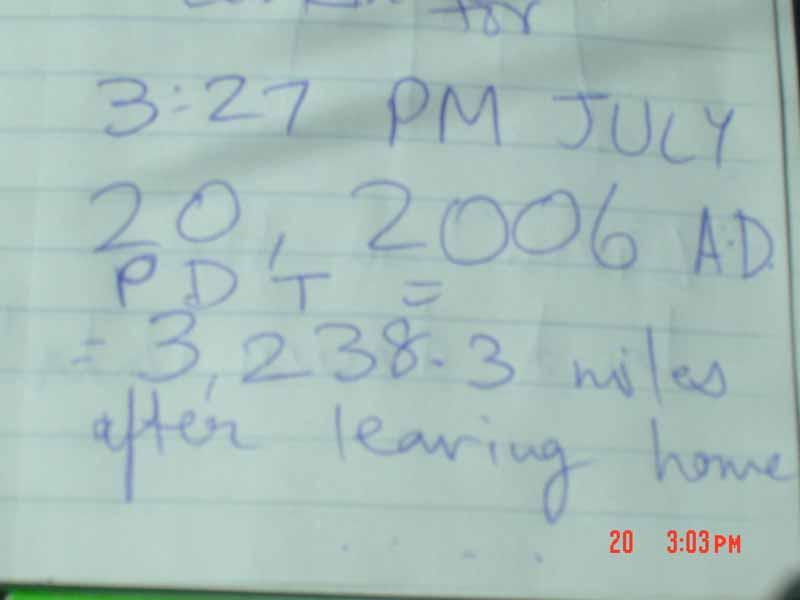 for
3:27 PM JULY
20, 2006 A.D.
PDT =
= 3,238.3 miles
after leaving home
20 3:03 PM